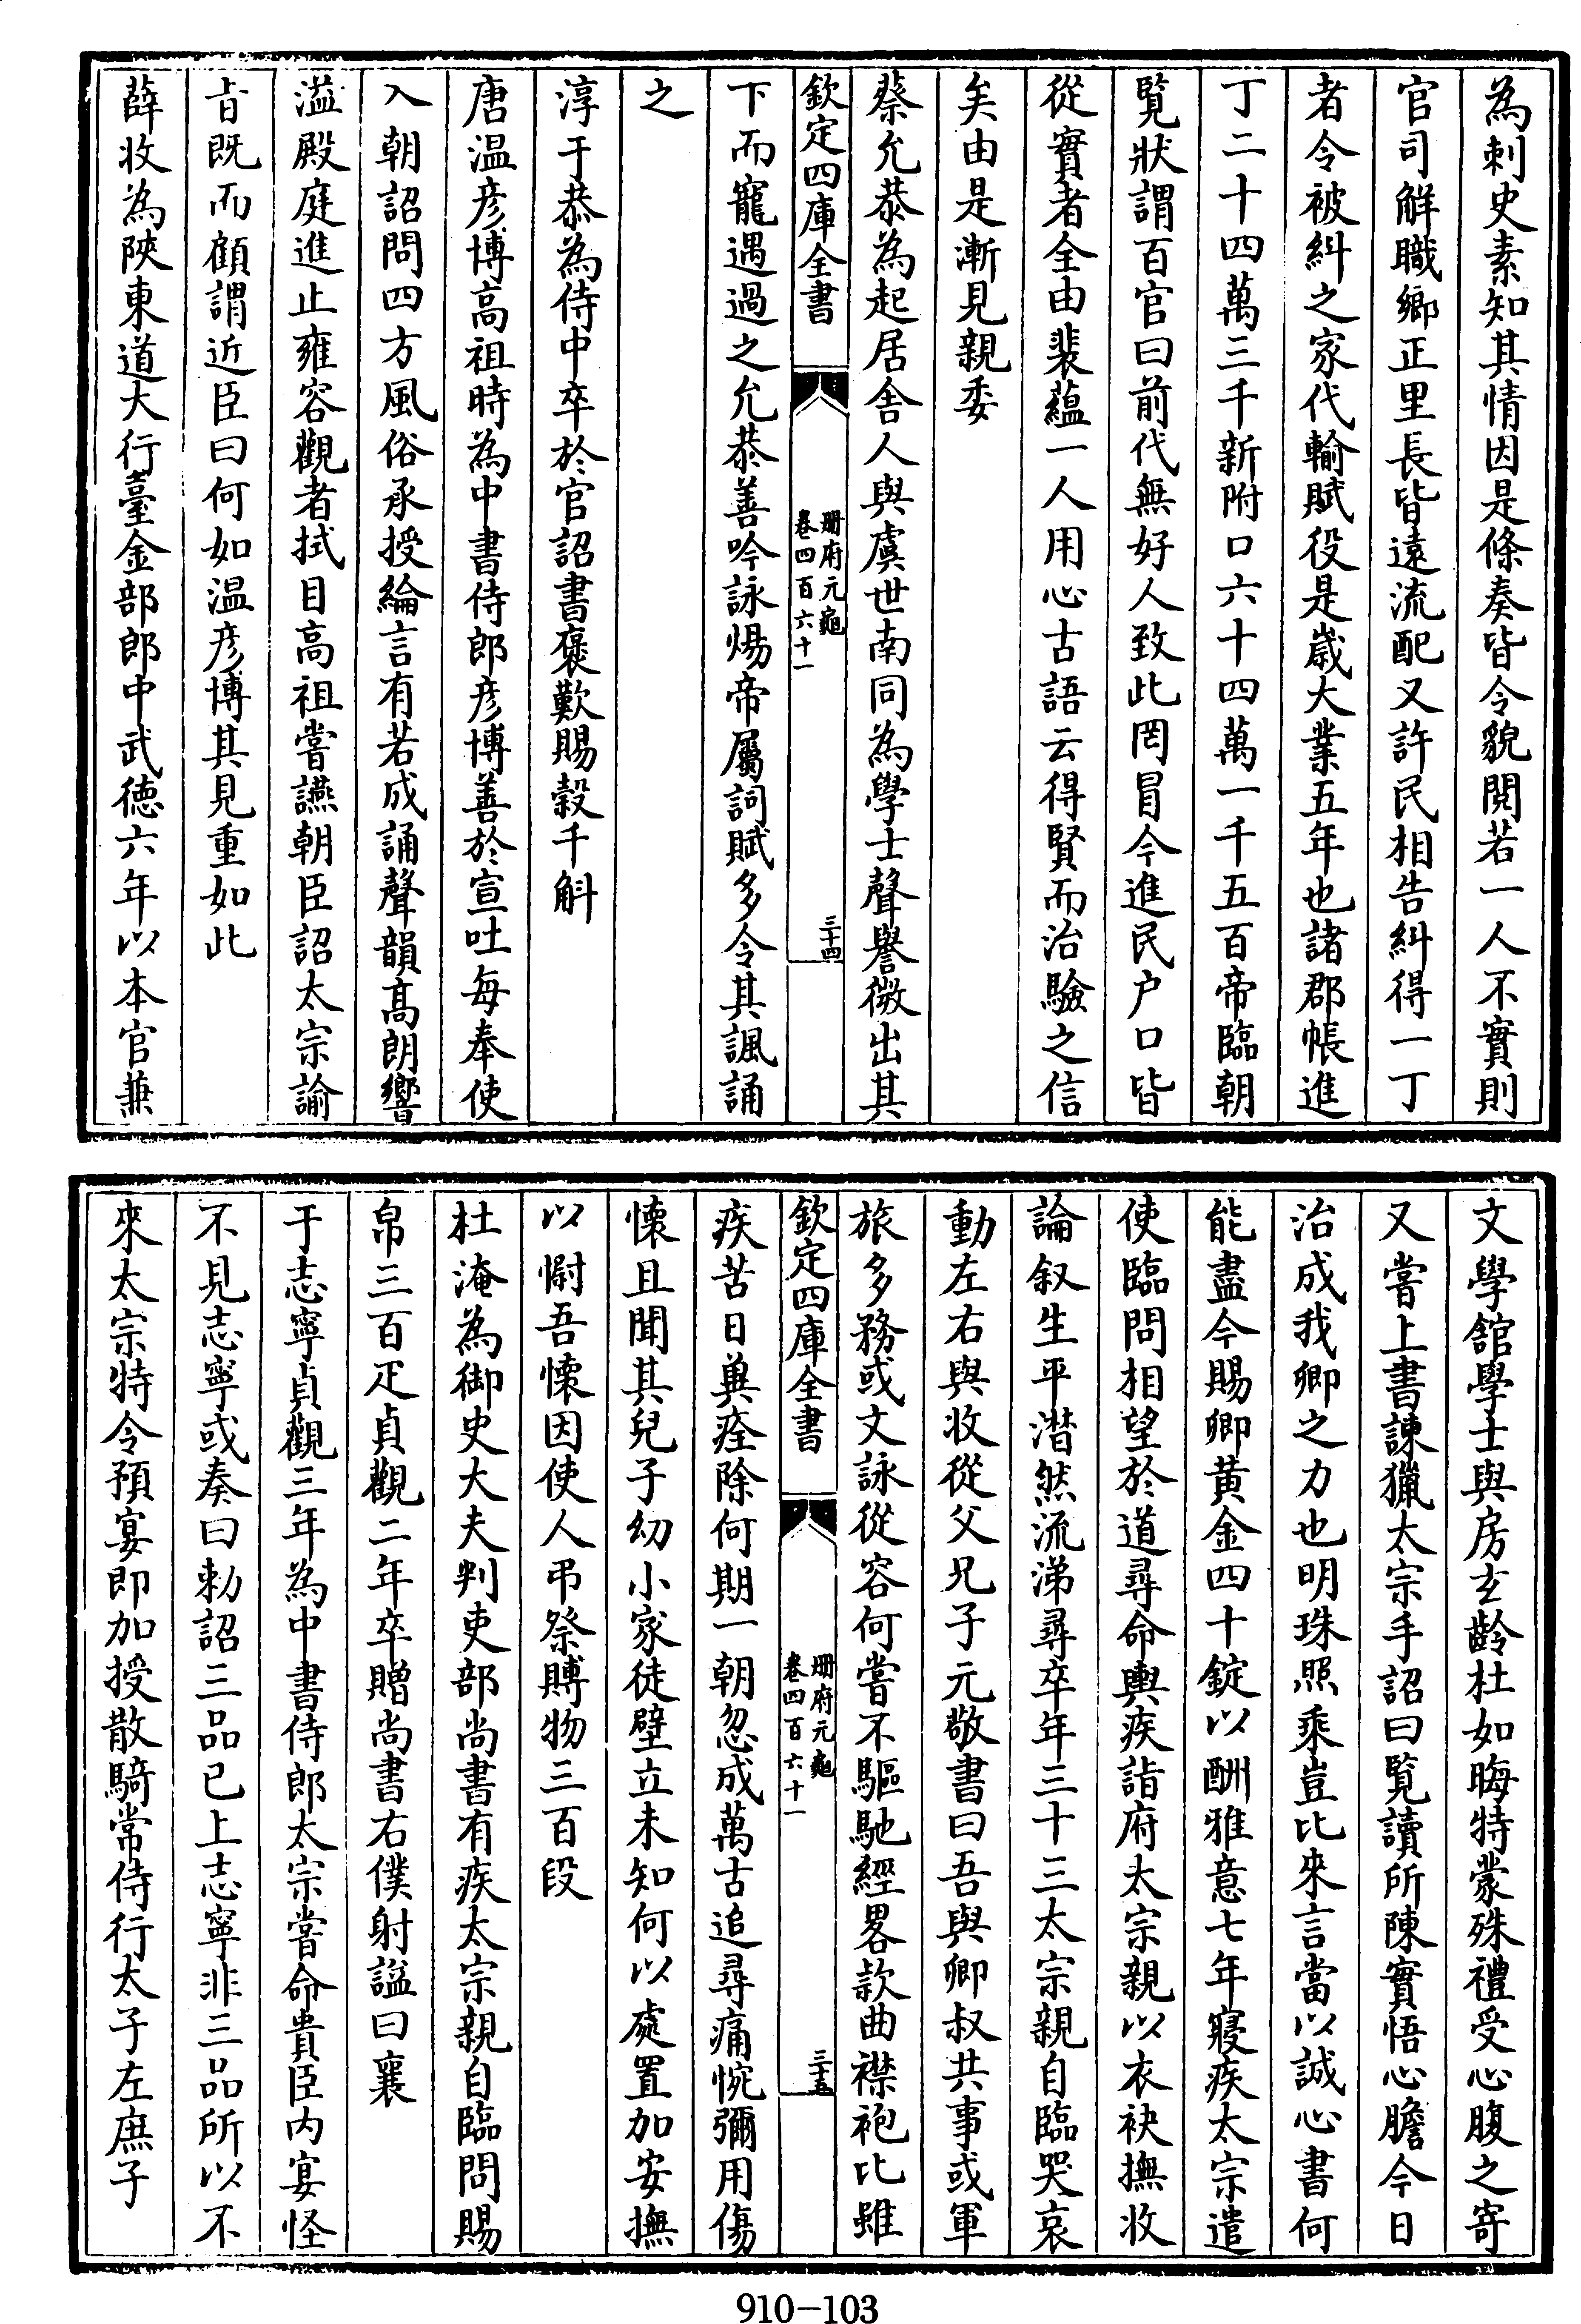 為刺史素知其情因是條奏皆令貌閱若一人不實則
官司解職鄉正里長皆遠流配又許民相告糾得一丁
者令被糾之家代輸賦役是歲大業五年也諸郡帳進
丁二十四萬三千新附口六十四萬一千五百帝臨朝
覽狀謂百官曰前代無好人致此罔冒今進民户口皆
從實者全由裴蘊一人用心古語云得賢而治驗之信
矣由是漸見親委
蔡允恭為起居舎人與虞世南同為學士聲譽微出其
欽定四庫全書
冊府元龜
卷四百六十一
三十四
下而寵遇過之允恭善吟詠煬帝屬詞賦多令其諷誦
之
淳于恭為侍中卒於官詔書褒歎賜穀千斛
唐温彦博高祖時為中書侍郎彦博善於宣吐每奉使
入朝詔問四方風俗承授綸言有若成誦聲韻髙朗響
溢殿庭進止雍容觀者拭目高祖嘗讌朝臣詔太宗諭
㫖既而顧謂近臣曰何如温彦博其見重如此
薛收為陜東道大行臺金部郎中武徳六年以本官兼
文學舘學士與房玄齡杜如晦特蒙殊禮受心腹之寄
又嘗上書諫獵太宗手詔曰覧讀所陳實悟心膽今日
治成我卿之力也明珠照乘豈比來言當以誠心書何
能盡今賜卿黄金四十錠以酬雅意七年寢疾太宗遣
使臨問相望於道尋命輿疾詣府太宗親以衣袂撫收
論叙生平潸然流涕尋卒年三十三太宗親自臨哭哀
動左右與收從父兄子元敬書曰吾與卿叔共事或軍
旅多務或文詠從容何嘗不驅馳經畧款曲襟袍比雖
欽定四庫全書
冊府元龜
卷四百六十一
三十五
疾苦日兾痊除何期一朝忽成萬古追尋痛惋彌用傷
懐且聞其兒子幼小家徒壁立未知何以處置加安撫
以慰吾懐因使人弔祭賻物三百段
杜淹為御史大夫判吏部尚書有疾太宗親自臨問賜
帛三百疋貞觀二年卒贈尚書右僕射諡曰襄
于志寧貞觀三年為中書侍郎太宗嘗命貴臣内宴怪
不見志寧或奏曰勅詔三品已上志寧非三品所以不
來太宗特令預宴即加授散騎常侍行太子左庶子
910-103